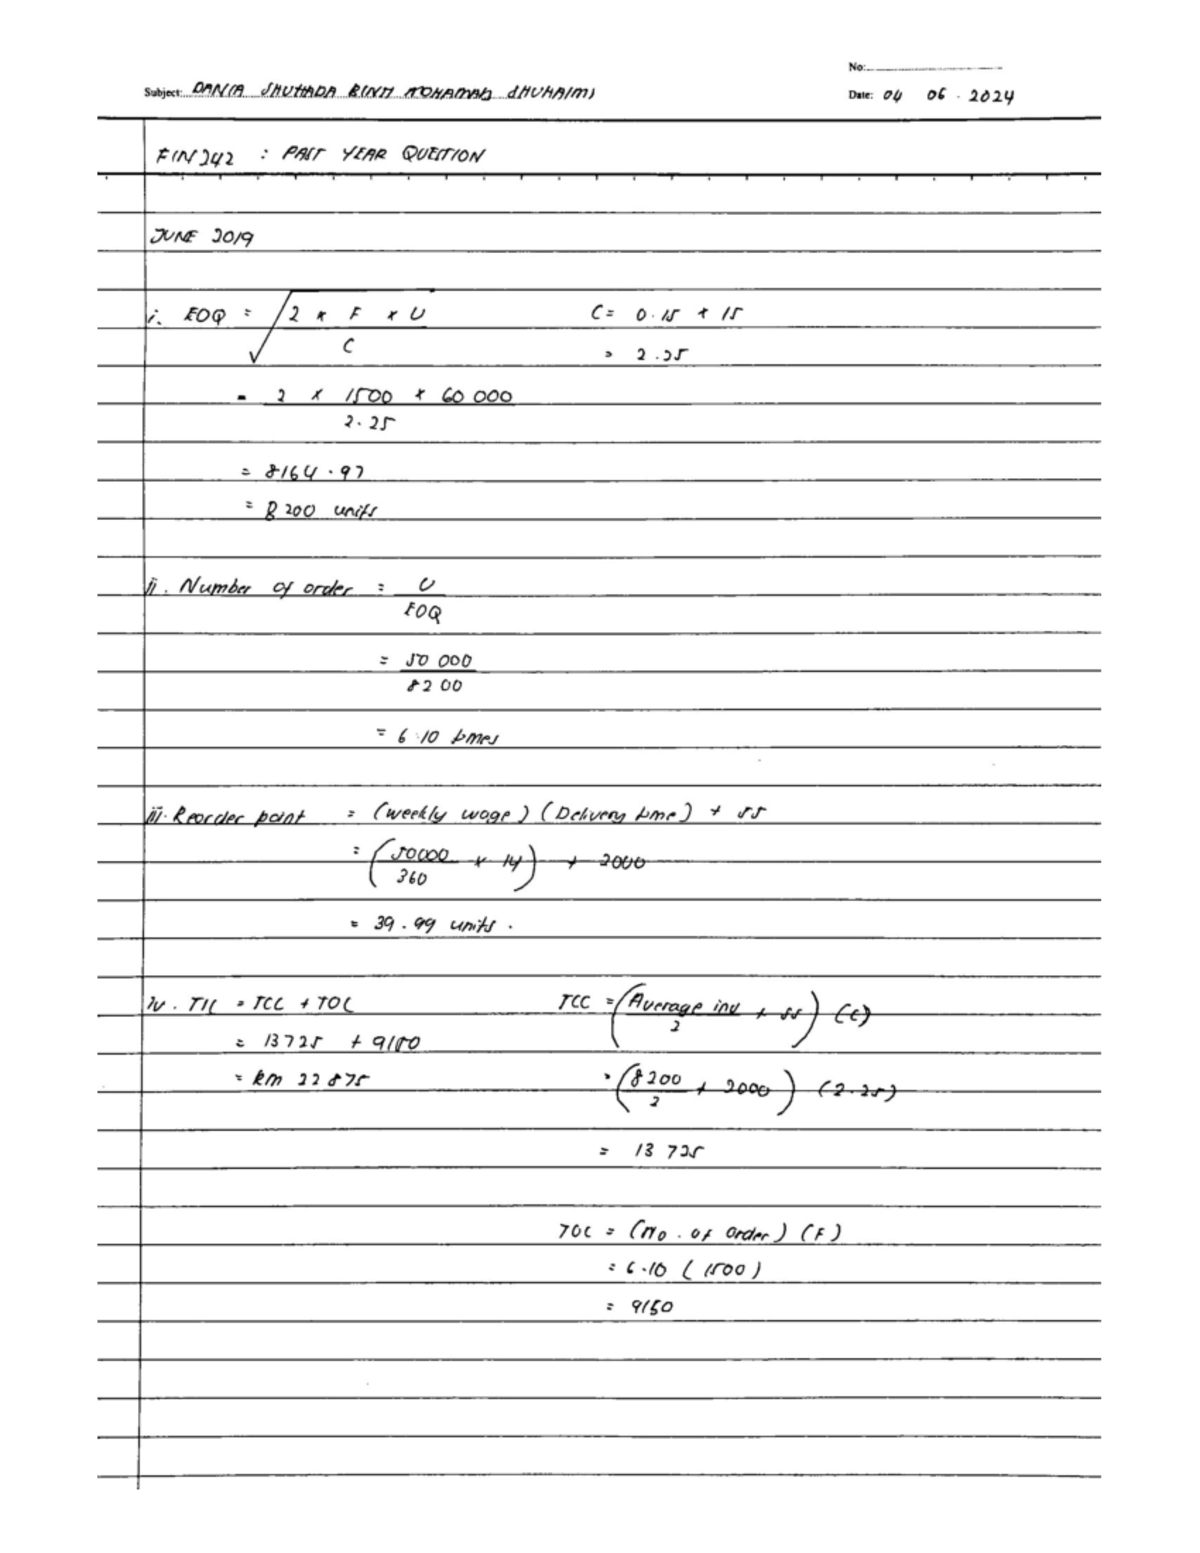 No:
Subject: DANIA SHUHADA BINTI MOHAMAD SHUHAIMI
Date: 04 06 - 2024
FIN242 : PAST YEAR QUESTION
JUNE 2019
i. EOQ = √ 2 × F × U
C
C = 0.15 × 15
= 2.25
= 2 × 1500 × 60 000
2.25
= 8164.97
= 8200 units
ii. Number of order = U
EOQ
= 50 000
8200
= 6.10 times
iii. Reorder point = (weekly wage) (Delivery time) + SS
= ( 50000 × 14 ) + 2000
360
= 39.99 units.
iv. TIC = TCC + TOC
= 13725 + 9150
= RM 22 875
TCC = ( Average inv + SS ) (C)
2
= ( 8200 + 2000 ) (2.25)
2
= 13 725
TOC = (No. of order) (F)
= 6.10 (1500)
= 9150